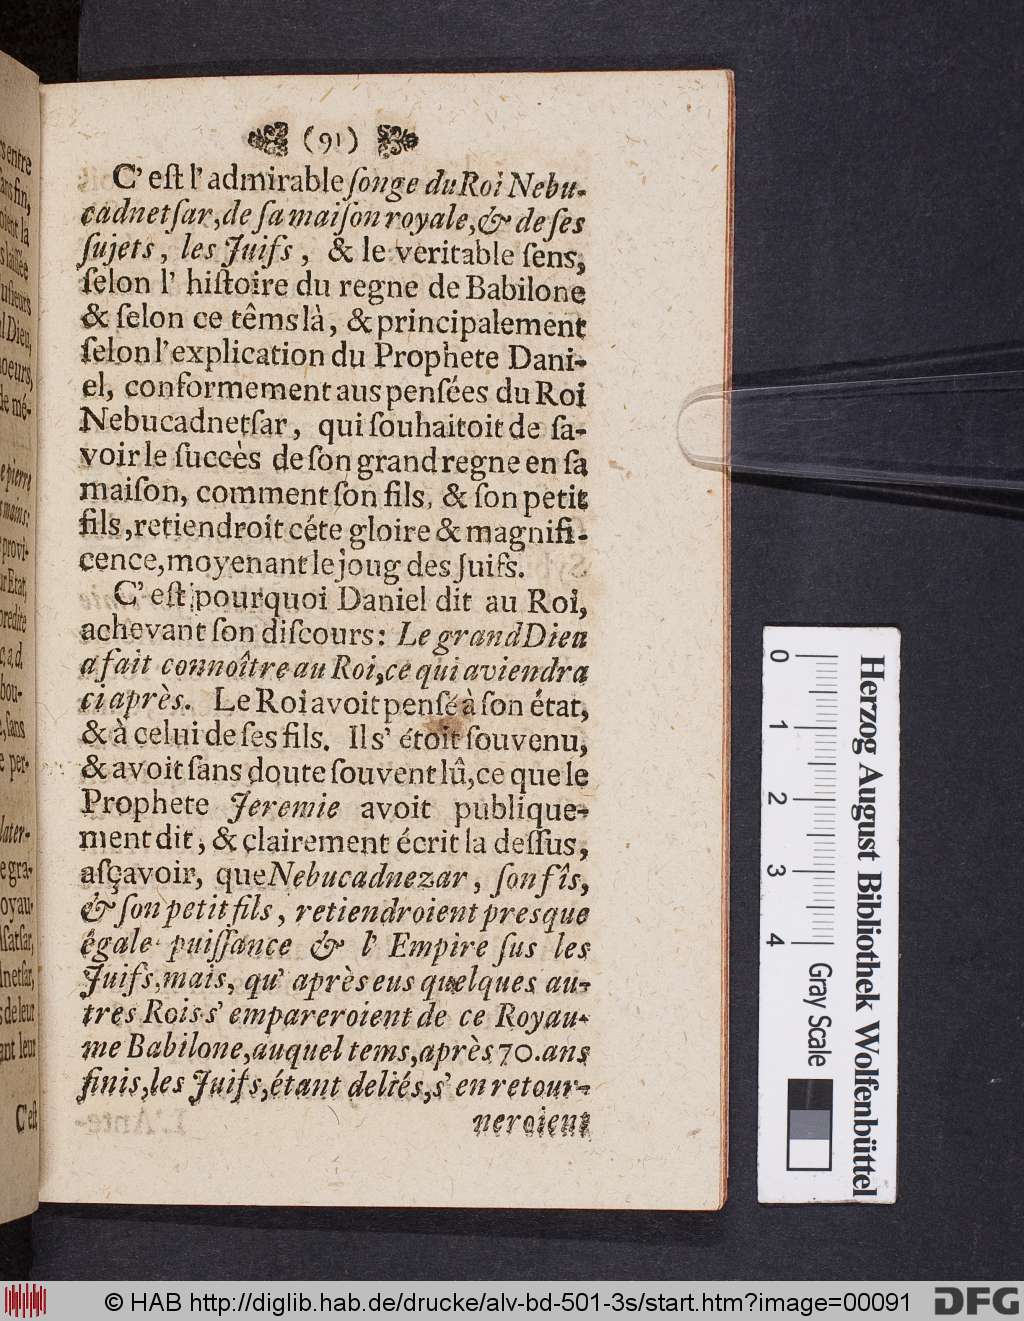 (91)
C' eſt l' admirable ſonge du Roi Nebu-
cadnetſar, de ſa maiſon royale, & de ſes
ſujets, les Juifs, & le veritable ſens,
ſelon l' hiſtoire du regne de Babilone
& ſelon ce têms là, & principalement
ſelon l' explication du Prophete Dani-
el, conformement aus penſées du Roi
Nebucadnetſar, qui ſouhaitoit de ſa-
voir le ſuccès de ſon grand regne en ſa
maiſon, comment ſon fils, & ſon petit
fils, retiendroit céte gloire & magnifi-
cence, moyenant le joug des Juifs.
C' eſt pourquoi Daniel dit au Roi,
achevant ſon diſcours: Le grand Dieu
a fait connoître au Roi, ce qui aviendra
ci après. Le Roi avoit penſé à ſon état,
& à celui de ſes fils. Il s' étoit ſouvenu,
& avoit ſans doute ſouvent lû, ce que le
Prophete Jeremie avoit publique-
ment dit, & clairement écrit la deſſus,
aſçavoir, que Nebucadnezar, ſon fîs,
& ſon petit fils, retiendroient presque
égale puiſſance & l' Empire ſus les
Juifs, mais, qu' après eus quelques au-
tres Rois s' empareroient de ce Royau-
me Babilone, auquel tems, après 70. ans
finis, les Juifs, étant deliés, s' en retour-
neroient
s entre
ans fin,
oient la
s laiſſée
uſieurs
l Dieu,
oeurs,
de mé-
e pierre
s mains;
provi-
ur Etat,
predite
c, a, d,
bou-
e, ſans
e per-
later-
e gra-
oyau-
aſatſar,
dnetſar,
s de leur
ant leur
C'eſt
0
1
2
3
4
Gray Scale
Herzog August Bibliothek Wolfenbüttel
© HAB http://diglib.hab.de/drucke/alv-bd-501-3s/start.htm?image=00091
DFG